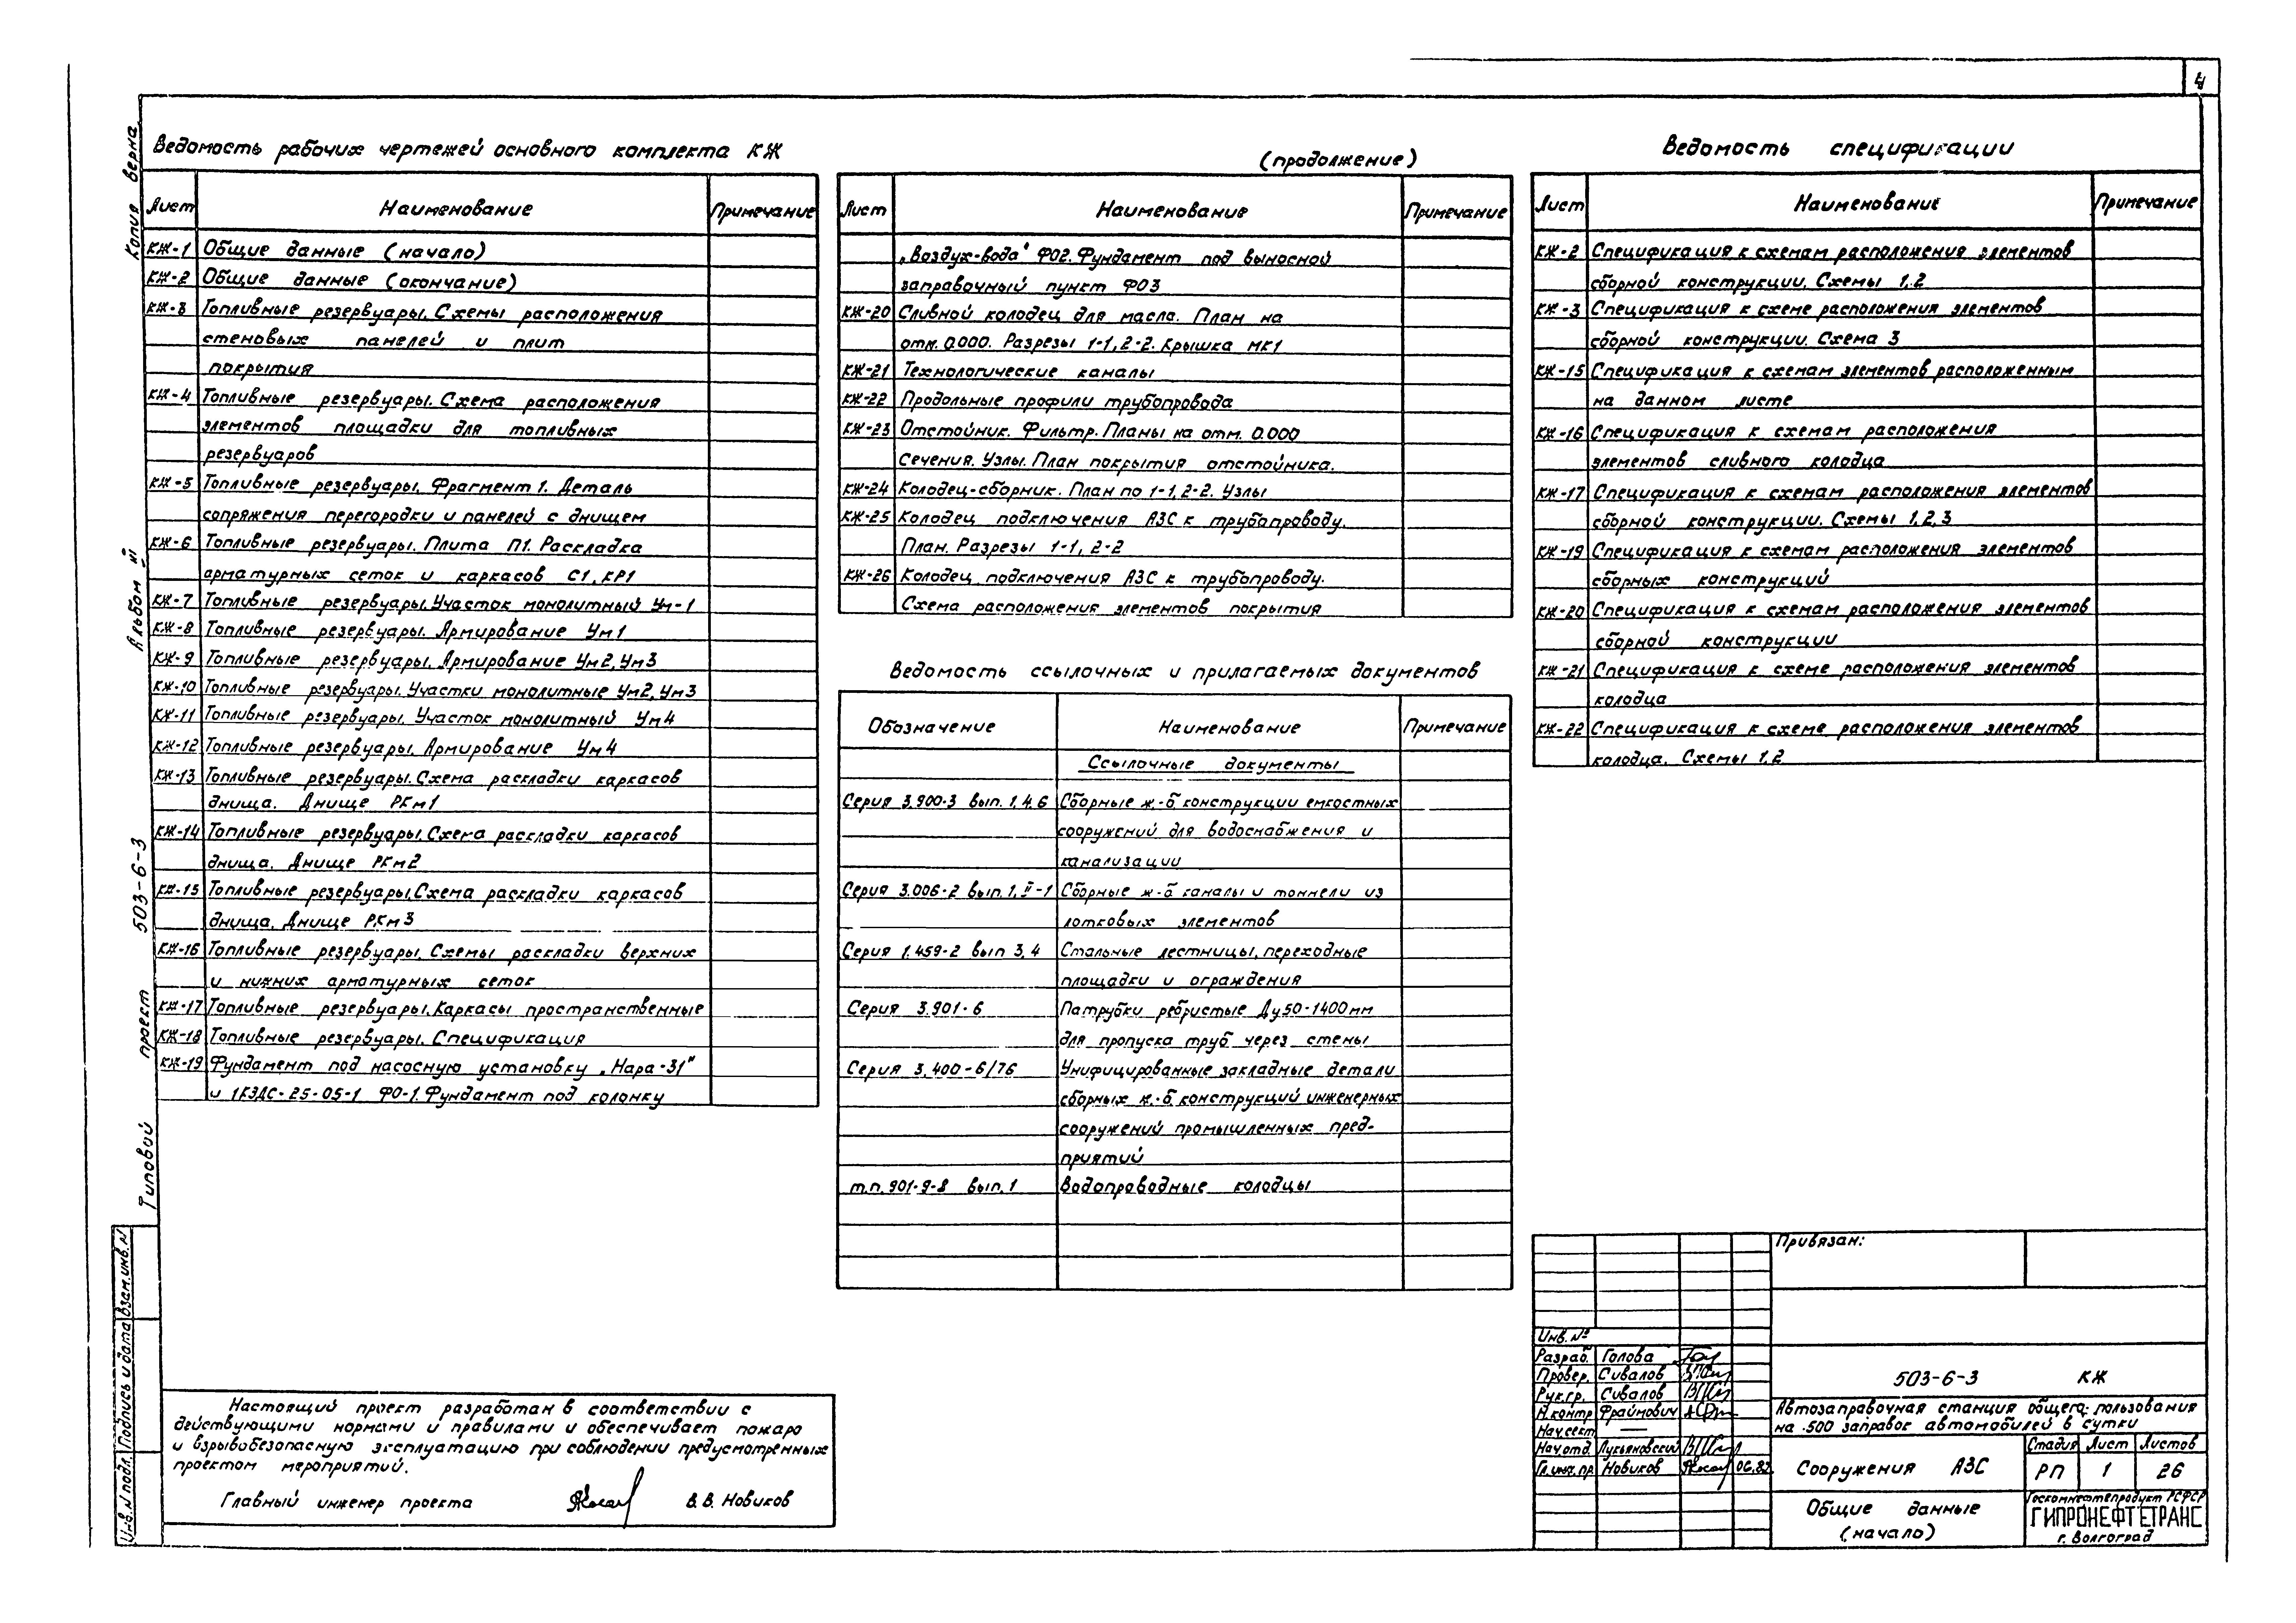 4
Копия верна
Ведомость рабочих чертежей основного комплекта КЖ
Лист Наименование Примечание
КЖ-1 Общие данные (начало)
КЖ-2 Общие данные (окончание)
КЖ-3 Топливные резервуары. Схемы расположения
стеновых панелей и плит
покрытия
КЖ-4 Топливные резервуары. Схема расположения
элементов площадки для топливных
резервуаров
КЖ-5 Топливные резервуары. Фрагмент 1. Деталь
сопряжения перегородки и панелей с днищем
КЖ-6 Топливные резервуары. Плита П1. Раскладка
арматурных сеток и каркасов С1, КР1
КЖ-7 Топливные резервуары. Участок монолитный Ум-1
КЖ-8 Топливные резервуары. Армирование Ум1
КЖ-9 Топливные резервуары. Армирование Ум2, Ум3
КЖ-10 Топливные резервуары. Участки монолитные Ум2, Ум3
КЖ-11 Топливные резервуары. Участок монолитный Ум4
КЖ-12 Топливные резервуары. Армирование Ум4
КЖ-13 Топливные резервуары. Схема раскладки каркасов
днища. Днище РКм1
КЖ-14 Топливные резервуары. Схема раскладки каркасов
днища. Днище РКм2
КЖ-15 Топливные резервуары. Схема раскладки каркасов
днища. Днище РКм3
КЖ-16 Топливные резервуары. Схемы раскладки верхних
и нижних арматурных сеток
КЖ-17 Топливные резервуары. Каркасы пространственные
КЖ-18 Топливные резервуары. Спецификация
КЖ-19 Фундамент под насосную установку „Нара-31"
и 1КЭДС-25-05-1 ФО-1. Фундамент под колонку
(продолжение)
Лист Наименование Примечание
„Воздух-вода" ФО2. Фундамент под выносной
заправочный пункт ФО3
КЖ-20 Сливной колодец для масла. План на
отм. 0.000. Разрезы 1-1, 2-2. Крышка МК1
КЖ-21 Технологические каналы
КЖ-22 Продольные профили трубопровода
КЖ-23 Отстойник. Фильтр. Планы на отм. 0.000
Сечения. Узлы. План покрытия отстойника.
КЖ-24 Колодец-сборник. План по 1-1, 2-2. Узлы
КЖ-25 Колодец подключения АЗС к трубопроводу.
План. Разрезы 1-1, 2-2
КЖ-26 Колодец подключения АЗС к трубопроводу.
Схема расположения элементов покрытия
Ведомость ссылочных и прилагаемых документов
Обозначение Наименование Примечание
Ссылочные документы
Серия 3.900-3 вып. 1, 4, 6 Сборные ж.-б конструкции емкостных
сооружений для водоснабжения и
канализации
Серия 3.006-2 вып. 1, II-1 Сборные ж-б каналы и тоннели из
лотковых элементов
Серия 1.459-2 вып 3, 4 Стальные лестницы, переходные
площадки и ограждения
Серия 3.901-6 Патрубки ребристые Ду50-1400мм
для пропуска труб через стены
Серия 3.400-6/76 Унифицированные закладные детали
сборных ж.-б. конструкций инженерных
сооружений промышленных пред-
приятий
т.п. 901-9-8 вып. 1 Водопроводные колодцы
Ведомость спецификации
Лист Наименование Примечание
КЖ-2 Спецификация к схемам расположения элементов
сборной конструкции. Схемы 1, 2
КЖ-3 Спецификация к схеме расположения элементов
сборной конструкции. Схема 3
КЖ-15 Спецификация к схемам элементов расположенным
на данном листе
КЖ-16 Спецификация к схемам расположения
элементов сливного колодца
КЖ-17 Спецификация к схемам расположения элементов
сборной конструкции. Схемы 1, 2, 3
КЖ-19 Спецификация к схемам расположения элементов
сборных конструкций
КЖ-20 Спецификация к схемам расположения элементов
сборной конструкции
КЖ-21 Спецификация к схеме расположения элементов
колодца
КЖ-22 Спецификация к схеме расположения элементов
колодца. Схемы 1, 2
Типовой проект 503-6-3 Альбом VI
Инв. N подл. Подпись и дата Взам. инв. N
Настоящий проект разработан в соответствии с
действующими нормами и правилами и обеспечивает пожаро
и взрывобезопасную эксплуатацию при соблюдении предусмотренных
проектом мероприятий.
Главный инженер проекта В.В. Новиков
Привязан:
Инв. №
Разраб. Голова
Провер. Сивалов
Рук.гр. Сивалов
Н.контр Фраймович
Нач.сект —
Нач.отд. Лукьяновский
Гл.инж.пр. Новиков 06.82
503-6-3 КЖ
Автозаправочная станция общего пользования
на 500 заправок автомобилей в сутки
Сооружения АЗС
Стадия Лист Листов
РП 1 26
Общие данные
(начало)
Госкомнефтепродукт РСФСР
ГИПРОНЕФТЕТРАНС
г. Волгоград